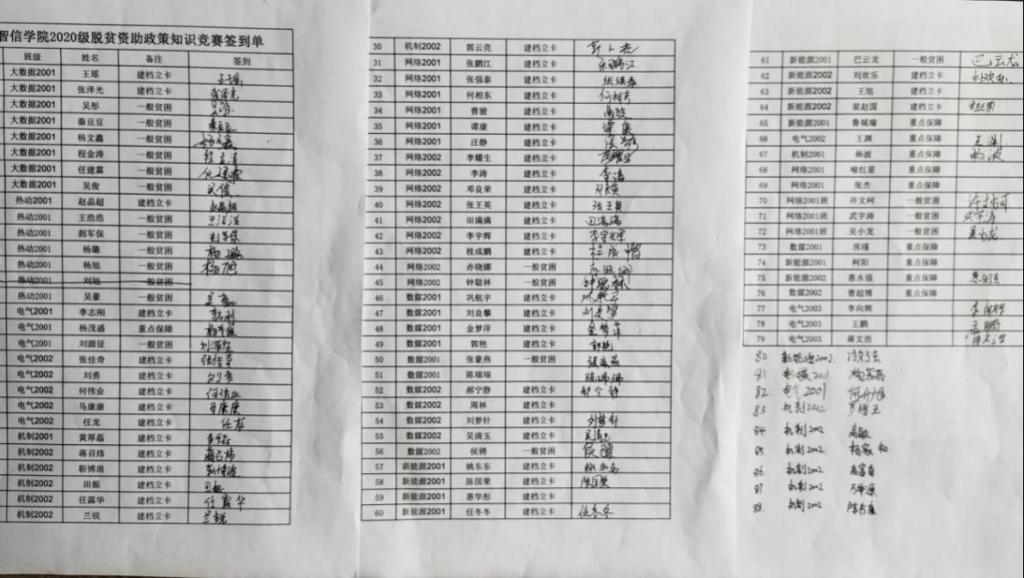 智信学院2020级脱贫资助政策知识竞赛签到单
班级 姓名 备注 签到
大数据2001 王瑶 建档立卡 王瑶
大数据2001 张泽光 建档立卡 张泽光
大数据2001 吴彤 一般贫困 吴彤
大数据2001 秦豆豆 一般贫困 秦豆豆
大数据2001 杨文鑫 一般贫困 杨文鑫
大数据2001 程金涛 一般贫困 程金涛
大数据2001 任建霖 一般贫困 任建霖
大数据2001 吴俊 一般贫困 吴俊
热动2001 赵晶超 建档立卡 赵晶超
热动2001 王浩浩 一般贫困 王浩浩
热动2001 军保 一般贫困
热动2001 杨璐 一般贫困 杨璐
热动2001 杨旭 一般贫困 杨旭
热动2001 刘旭 一般贫困
热动2001 吴豪 一般贫困 吴豪
电气2001 李志刚 建档立卡
电气2001 杨茂盛 重点保障 杨茂盛
电气2001 刘源征 一般贫困 刘源征
电气2002 张佳奇 建档立卡 张佳奇
电气2002 刘勇 建档立卡 刘勇
电气2002 何伟业 建档立卡 何伟业
电气2002 马康康 建档立卡 马康康
电气2002 任龙 建档立卡 任龙
机制2001 黄厚磊 建档立卡
机制2002 蒋召炜 建档立卡 蒋召炜
机制2002 靳博浪 建档立卡 靳博浪
机制2002 田振 建档立卡 田振
机制2002 任露华 建档立卡 任露华
机制2002 兰锐 建档立卡 兰锐
30 机制2002 郭云亮 建档立卡
31 网络2001 张鹏江 建档立卡 张鹏江
32 网络2001 张强泰 建档立卡 张强泰
33 网络2001 何相东 建档立卡 何相东
34 网络2001 曹骏 建档立卡 曹骏
35 网络2001 谭康 建档立卡 谭康
36 网络2002 汪静 建档立卡 汪静
37 网络2002 李耀生 建档立卡 李耀生
38 网络2002 李涛 建档立卡 李涛
39 网络2002 邓良荣 建档立卡
40 网络2002 张王英 建档立卡 张王英
41 网络2001 田满满 建档立卡 田满满
42 网络2002 李宇辉 建档立卡 李宇辉
43 网络2002 桂成鹏 建档立卡
44 网络2002 亦晓娜 一般贫困
45 网络2002 钟聪林 一般贫困 钟聪林
46 数媒2001 巩航宇 建档立卡
47 数媒2001 刘良攀 建档立卡
48 数媒2001 金梦萍 建档立卡 金梦萍
49 数媒2001 郭艳 建档立卡 郭艳
50 数媒2001 张豪燕 一般贫困 张豪燕
51 数媒2001 陈瑞瑞 陈瑞瑞
52 数媒2002 郝宁静 建档立卡 郝宁静
53 数媒2002 周林 建档立卡
54 数媒2002 刘梦针 建档立卡 刘梦针
55 数媒2002 吴清玉 建档立卡 吴清玉
56 数媒2002 侯骋 一般贫困 侯骋
57 新能源2001 姚东东 建档立卡 姚东东
58 新能源2001 陈国荣 建档立卡 陈国荣
59 新能源2001 惠学彤 建档立卡
60 新能源2001 任冬冬 建档立卡 任冬冬
61 新能源2001 巴云龙 一般贫困 巴云龙
62 新能源2002 刘欢乐 建档立卡 刘欢乐
63 新能源2002 王旭 建档立卡
64 新能源2002 梁赵国 建档立卡 梁赵国
65 新能源2001 鲁城瑜 重点保障
66 电气2002 王渊 重点保障 王渊
67 机制2001 杨波 重点保障 杨波
68 网络2001 喻红星 重点保障
69 网络2001 张杰 重点保障
70 网络2001班 许文珂 一般贫困 许文珂
71 网络2001班 武宇涛 一般贫困 武宇涛
72 网络2001班 吴小龙 一般贫困 吴小龙
73 数媒2001 房瑾 重点保障
74 新能源2001 柯阳 重点保障
75 新能源2002 惠永强 重点保障 惠永强
76 数媒2002 曹超博 重点保障
77 电气2003 李向辉 李向辉
78 电气2003 王鹏 王鹏
79 电气2003 蒋文浩 蒋文浩
80 新能源2002
81 数媒2001
82 电气2001
83 机制2002
84 机制2002
85 机制2002
86 机制2002
87 机制2002
88 机制2002